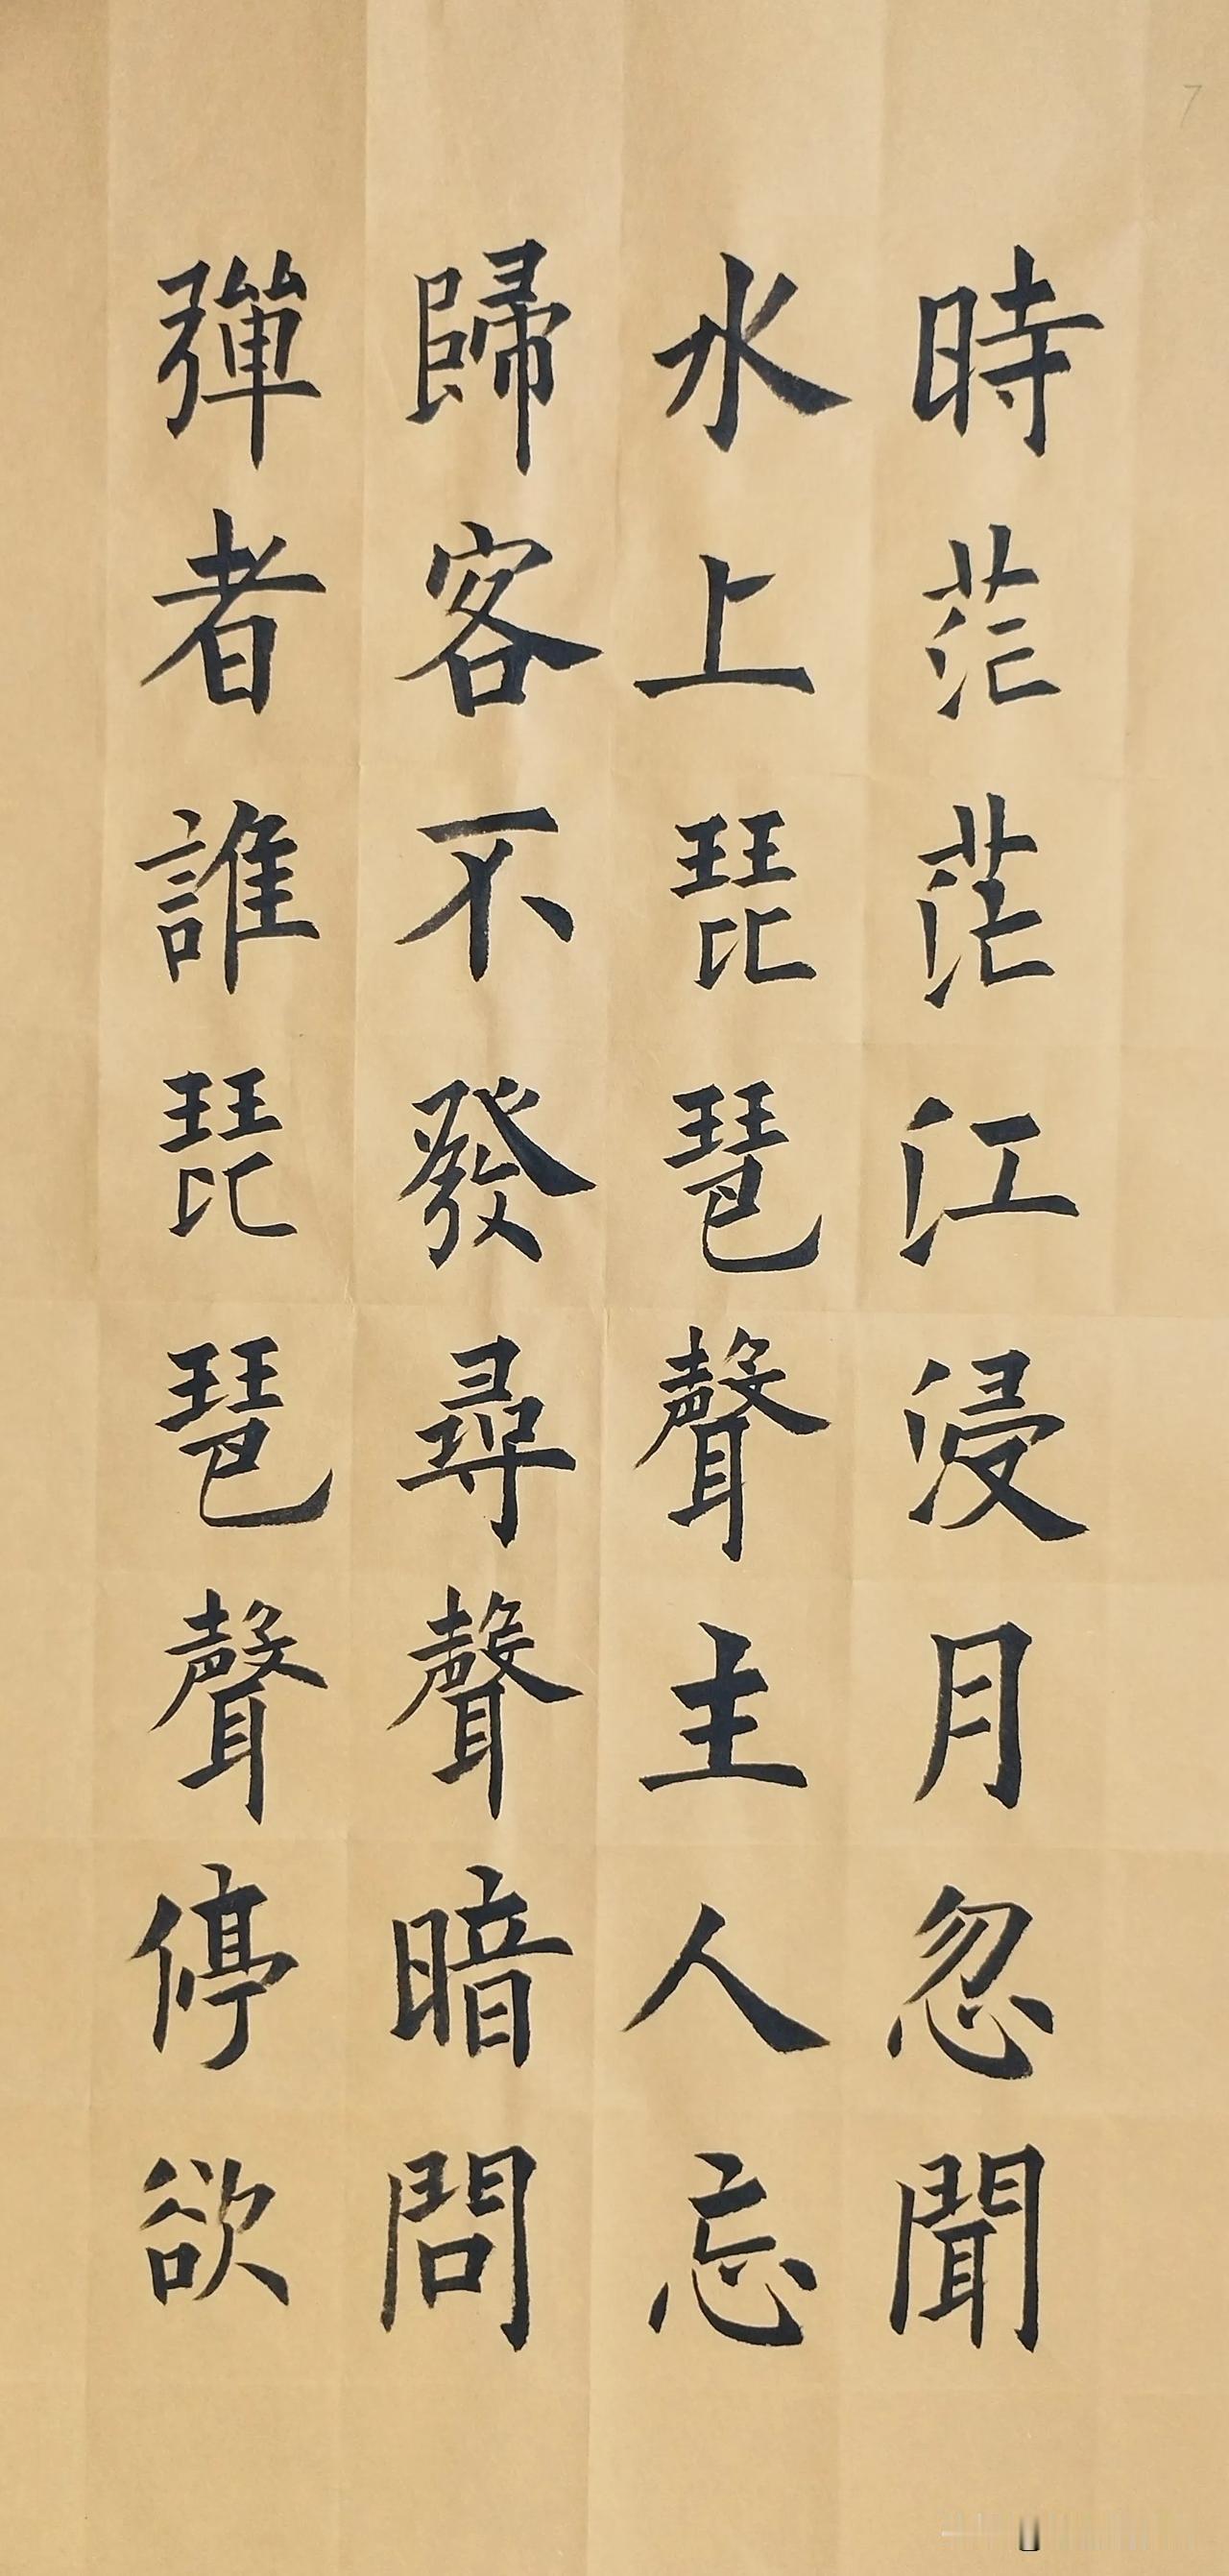 時茫茫江浸月忽聞
水上琵琶聲主人忘
歸客不發尋聲暗問
彈者誰琵琶聲停欲
7